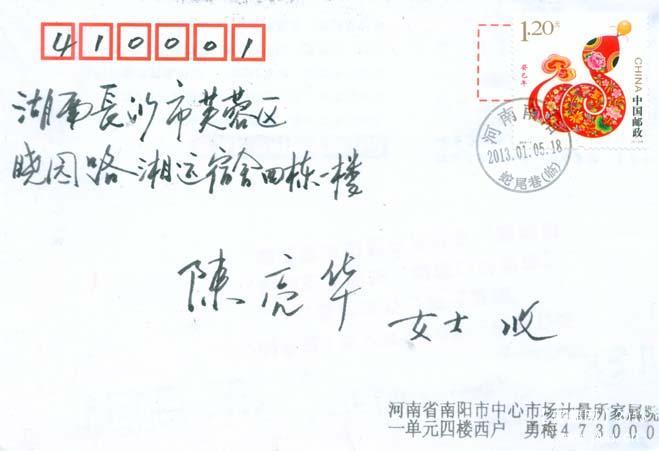 410001
1.20元
癸巳年
CHINA
中国邮政
河南南
2013.01.05.18
蛇尾巷(临)
湖南長沙市芙蓉区
晓园路湘运宿舍四栋一楼
陳亮华
女士 收
河南省南阳市中心市场计量所家属院
一单元四楼西户 勇梅473000